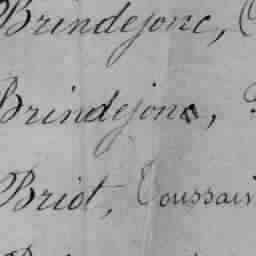 Brindejonc,
Brindejonc,
Briot, Toussain